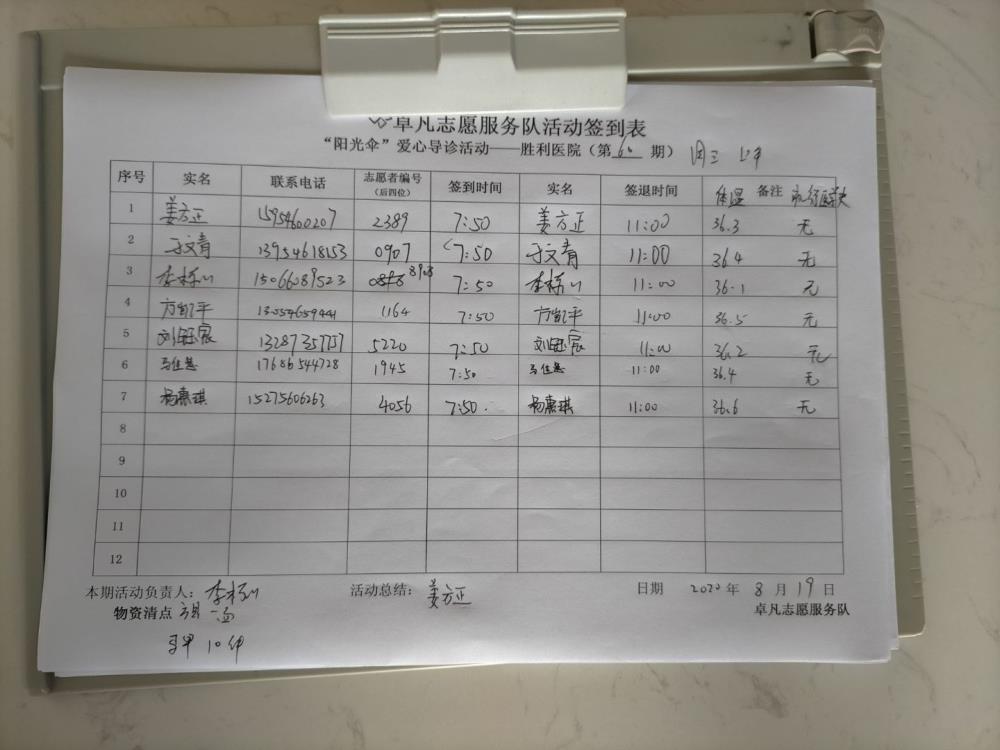 卓凡志愿服务队活动签到表
“阳光伞”爱心导诊活动——胜利医院（第 期） 周三 上午
序号 实名 联系电话 志愿者编号（后四位） 签到时间 实名 签退时间 体温 备注
1 姜方正 15954600207 2389 7:50 姜方正 11:00 36.3 无
2 于文青 13954618153 0907 7:50 于文青 11:00 36.4 无
3 李栋 15066089523 8908 7:50 李栋 11:00 36.1 无
4 1164 7:50 11:00 36.5 无
5 刘钰宸 13287357757 5220 7:50 刘钰宸 11:00 36.2 无
6 马佳慧 17686544728 1945 7:50 马佳慧 11:00 36.4 无
7 杨惠琪 15275606263 4056 7:50. 杨惠琪 11:00 36.6 无
8
9
10
11
12
本期活动负责人： 活动总结：姜方正 日期 2020年8月19日
物资清点 一面 卓凡志愿服务队
马甲 10件